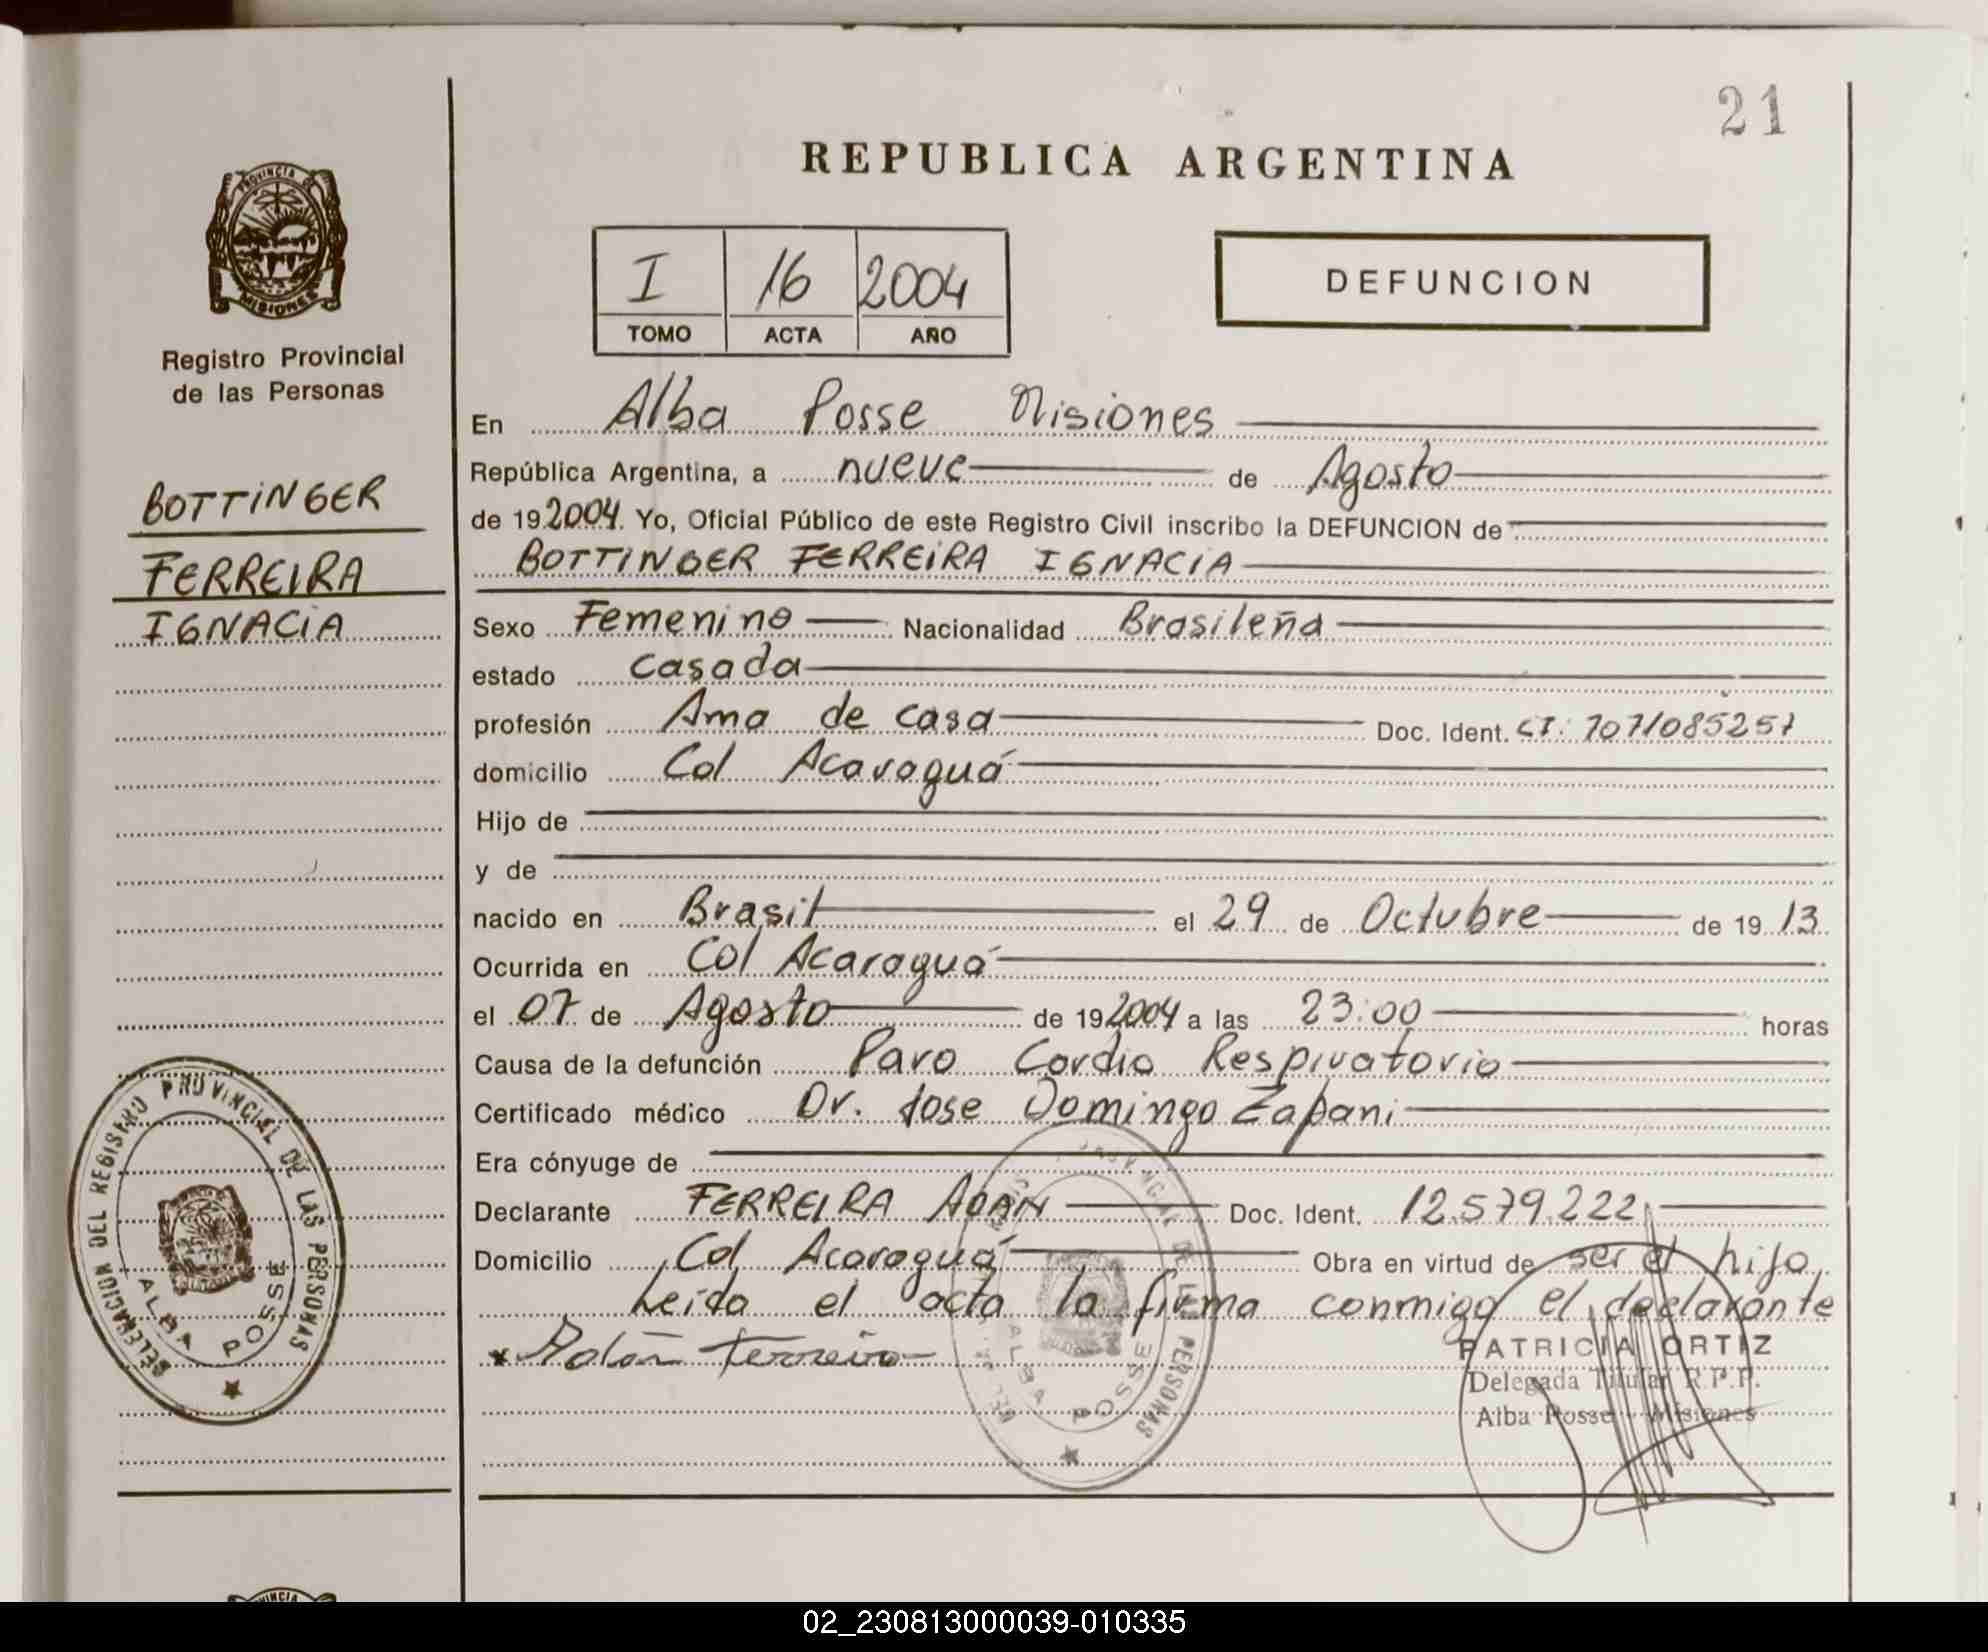 21
REPUBLICA ARGENTINA
PROVINCIA DE
MISIONES
I 16 2004
TOMO ACTA AÑO
DEFUNCION
Registro Provincial
de las Personas
BOTTINGER
FERREIRA
IGNACIA
En Alba Posse Misiones
República Argentina, a nueve de Agosto
de 19 2004. Yo, Oficial Público de este Registro Civil inscribo la DEFUNCION de
BOTTINGER FERREIRA IGNACIA
Sexo Femenino Nacionalidad Brasileña
estado casada
profesión Ama de casa Doc. Ident. CI: 7071085257
domicilio Col Acaraguá
Hijo de
y de
nacido en Brasil el 29 de Octubre de 19 13
Ocurrida en Col Acaraguá
el 07 de Agosto de 19 2004 a las 23:00 horas
Causa de la defunción Paro Cardio Respiratorio
Certificado médico Dr. Jose Domingo Zapani
Era cónyuge de
Declarante FERREIRA ADAN Doc. Ident. 12.579.222
Domicilio Col Acaraguá Obra en virtud de ser el hijo,
Leída el acta la firma conmigo el declarante
Ferreira
PATRICIA ORTIZ
Delegada Titular R.P.P.
Alba Posse - Misiones
DELEGACION DEL REGISTRO PROVINCIAL DE LAS PERSONAS
ALBA POSSE
PROVINCIAL DE LAS PERSONAS
ALBA POSSE
02_230813000039-010335